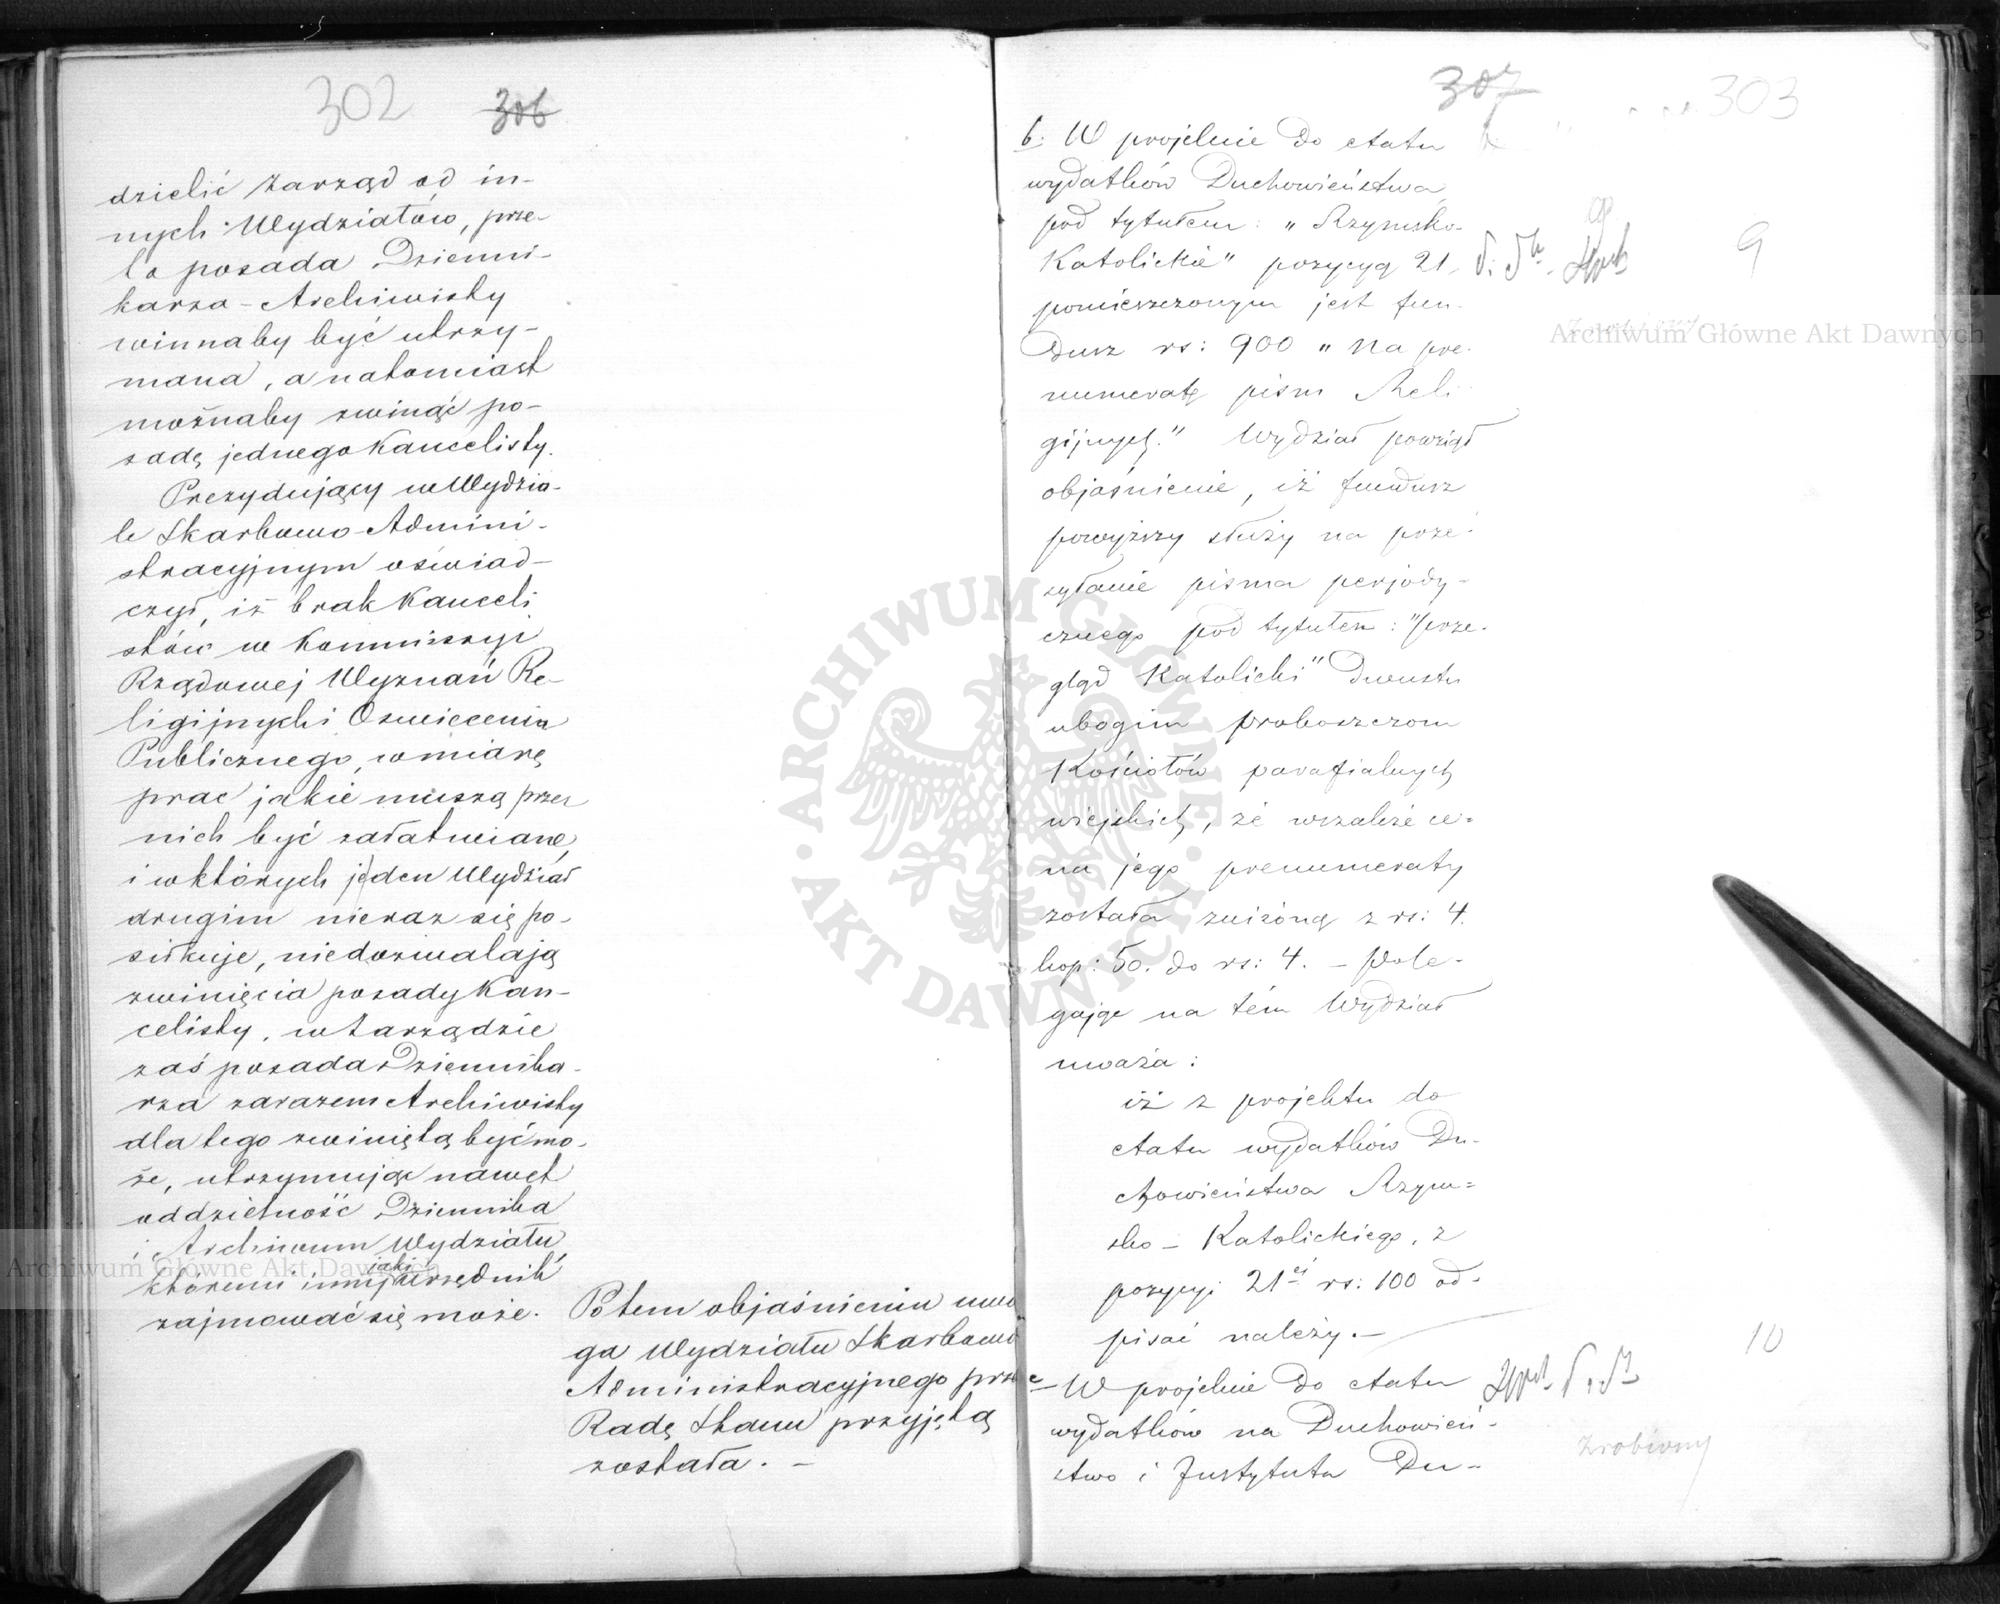 302 306
dzielić Zarząd od in-
nych Wydziałów, prze-
to posada Dzienni-
karza - Archiwisty
winnaby być utrzy-
mana, a natomiast
možnaby zwinąć po-
sadę jednego Kancelisty.
Prezydujący w Wydzia-
le Skarbowo-Admini-
stracyjnym oświad-
czył, iż brak Kanceli
stów w Kommissyi
Rządowej Wyznań Re-
ligijnych i Oswiecenia
Publicznego, w miarę
prac jakie muszą przez
nich być załatwiane,
i w których jeden Wydział
drugim nieraz się po-
siłkuje, niedozwalają
zwinięcia posady Kan-
celisty, w Zarządzie
zaś posada Dziennika-
rza zarazem Archiwisty
dla tego zwiniętą być mo-
że, utrzymując nawet
oddzielność Dziennika
i Archiwum Wydziału
któremi inny jaki urzędnik
zajmować się może.
Po tem objaśnieniu uwa
ga Wydziału Skarbowo
Administracyjnego przez
Radę Stanu przyjętą
została. -
307 303
b: W projekcie do etatu
wydatków Duchowieństwa
pod tytułem: "Rzymsko-
Katolickie" pozycyą 21,
pomieszczonym jest fun-
dusz rs: 900 "na pre-
numeratę pism Reli
gijnych." Wydział powziął
objaśnienie, iż fundusz
powyższy służy na prze-
syłanie pisma perjody-
cznego pod tytułem: "Prze-
gląd Katolicki" dwustu
ubogim proboszczom
Kościołów parafialnych
wiejskich, że wszakże ce-
na jego prenumeraty
została zniżoną z rs: 4.
kop: 50. do rs: 4. - Pole-
gając na tém Wydział
uważa:
iż z projektu do
etatu wydatków Du-
chowieństwa Rzym-
sko - Katolickiego, z
pozycyi 21ej rs: 100 od-
pisać należy. -
c - W projekcie do etatu
wydatków na Duchowień-
stwo i Instytuta Du-
9
10
Zrobiony
ARCHIWUM GŁÓWNE AKT DAWNYCH
Archiwum Główne Akt Dawnych
Archiwum Główne Akt Dawnych